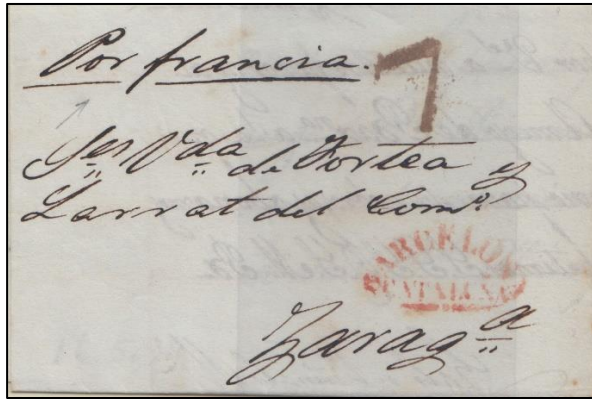 Por francia.
7
Sres Vda de Fortea y
Larrat del Como.
BARCELONA
CATALUÑA
Zaraga